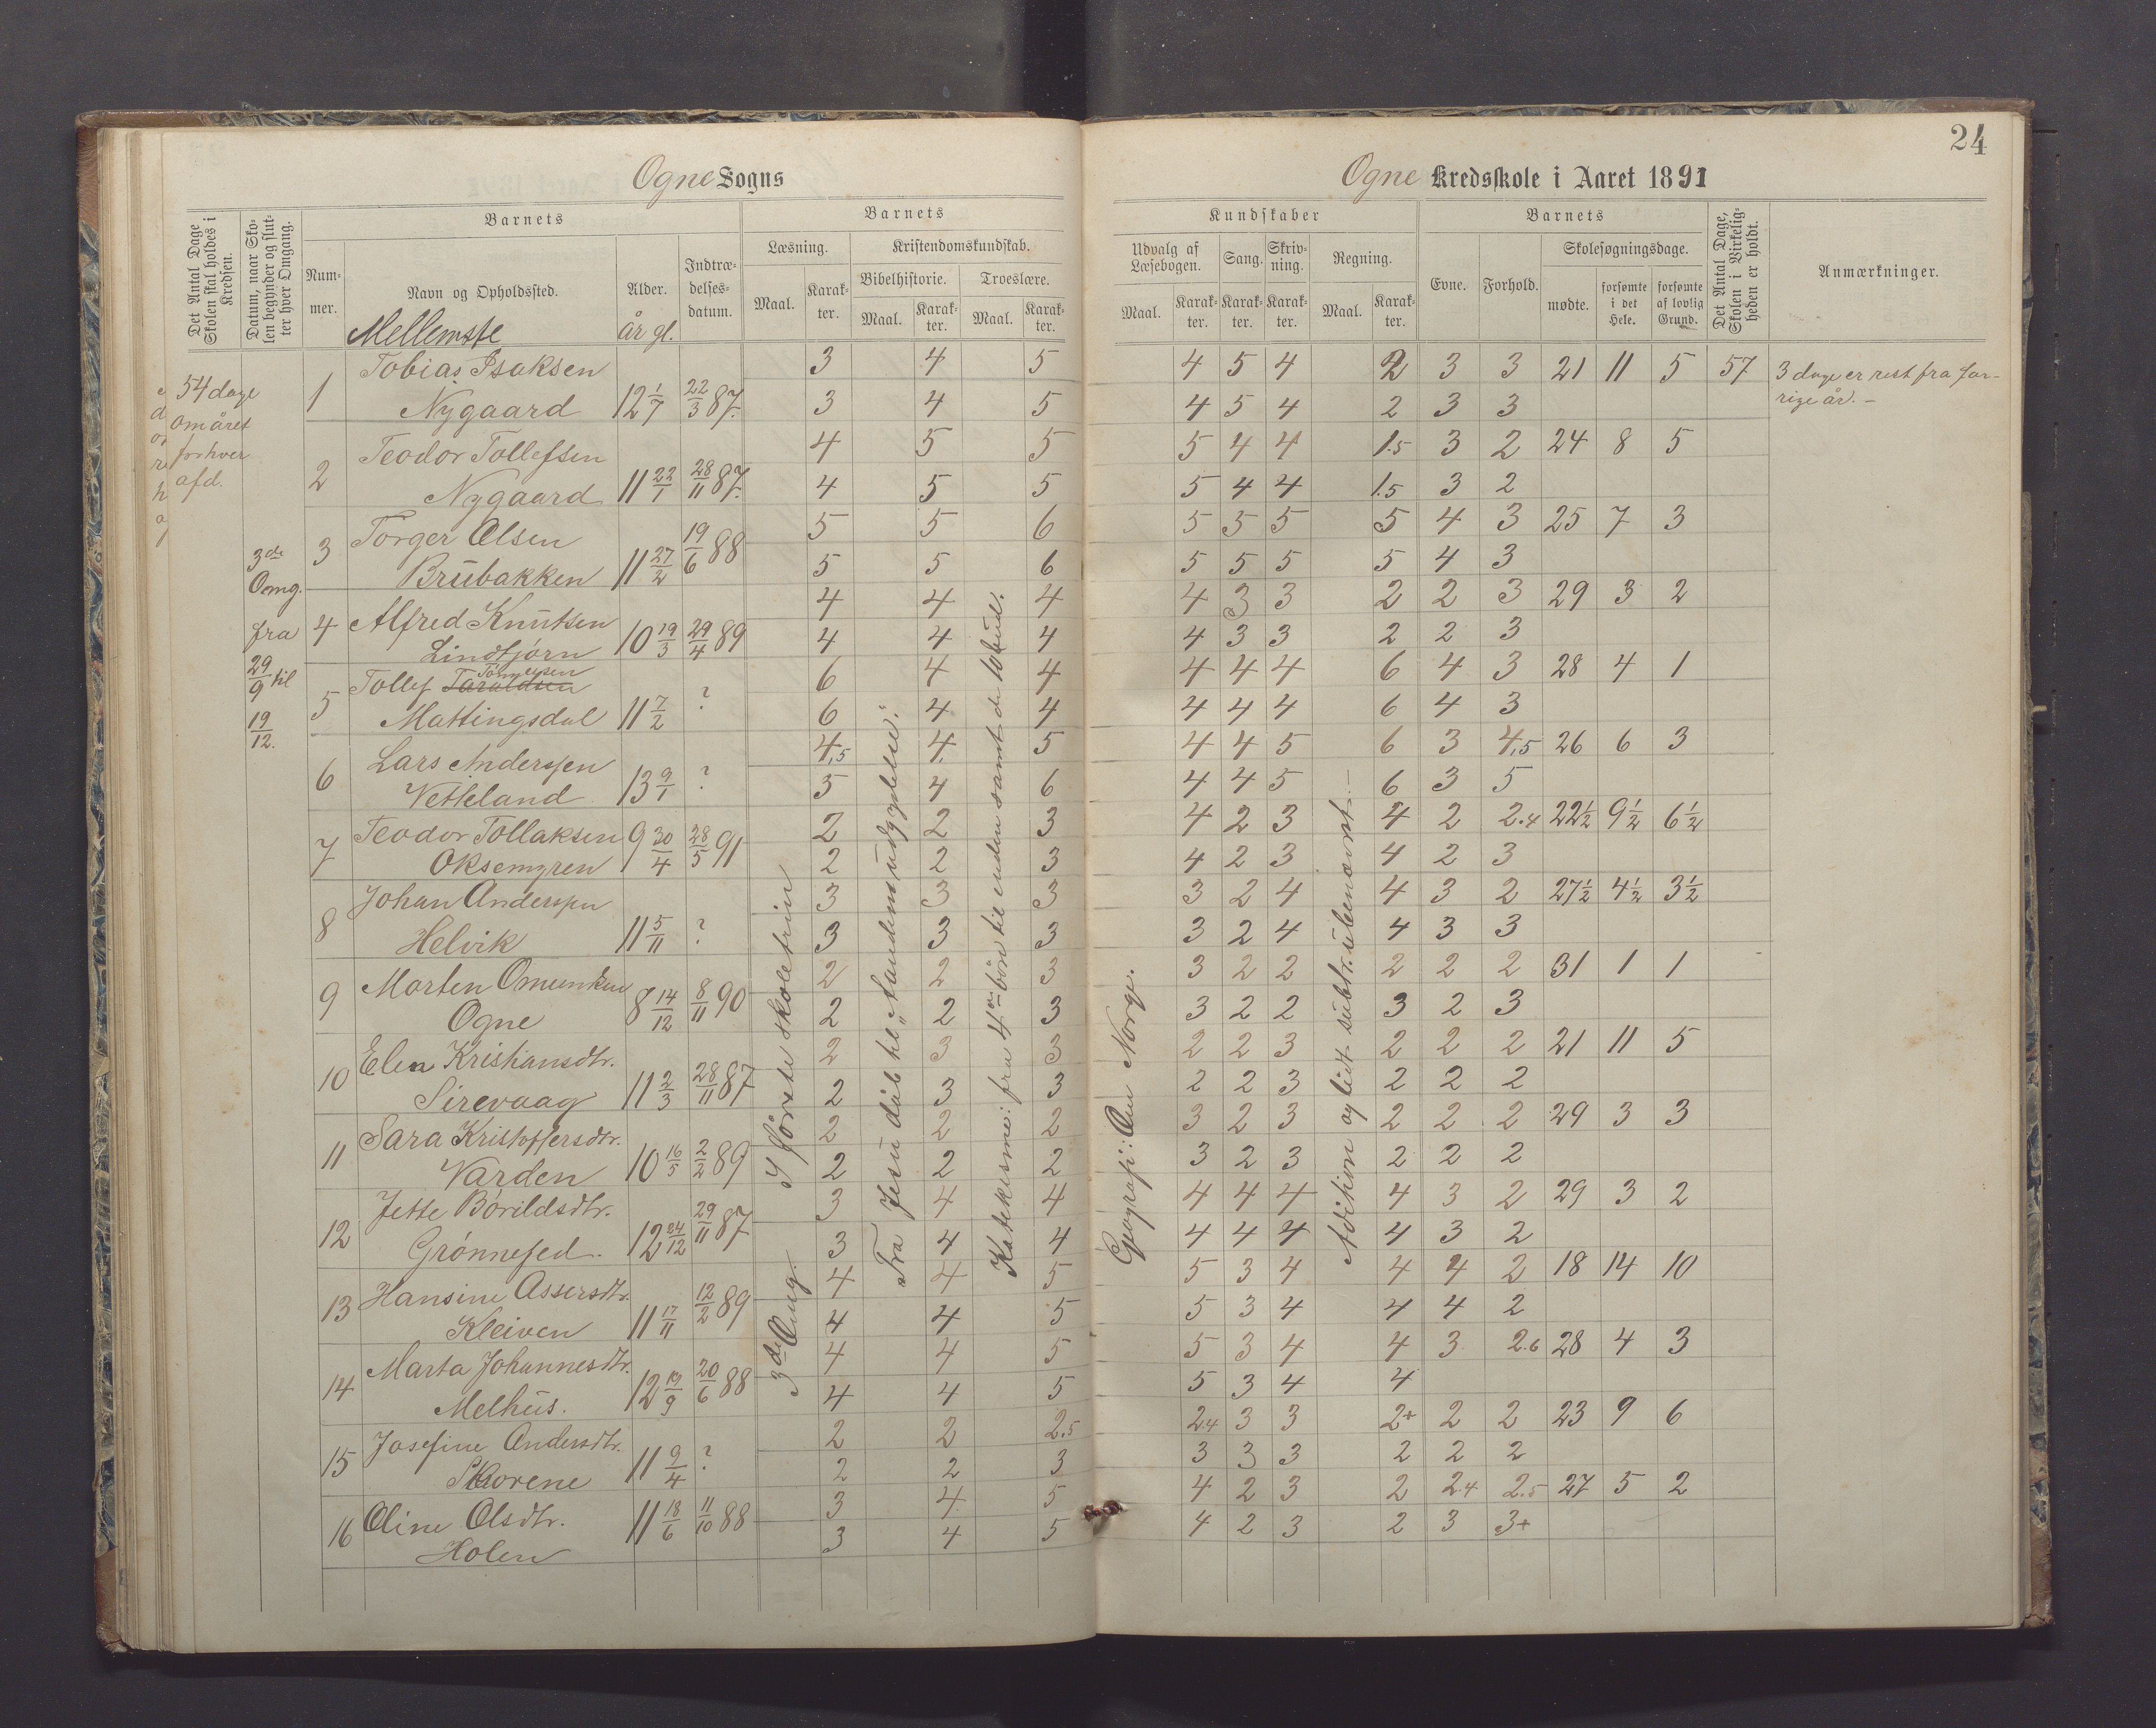 24
Ogne Sogns
Ogne Kredsskole i Aaret 1891
Det Antal Dage Skolen skal holdes i Kredsen.
Datum, naar Skolen begynder og slutter hver Omgang.
Barnets
Nummer.
Navn og Opholdssted.
Alder.
Indtrædelsesdatum.
Mellemste
År gl.
Barnets
Læsning.
Kristendomskundskab.
Bibelhistorie.
Troeslære.
Maal. Karakter. Maal. Karakter. Maal. Karakter.
Kundskaber
Udvalg af Læsebogen.
Sang.
Skrivning.
Regning.
Maal. Karakter. Karakter. Karakter. Maal. Karakter.
Barnets
Evne. Forhold.
Skolesøgningsdage.
mødte. forsømte i det Hele. forsømte af lovlig Grund.
Det Antal Dage, Skolen i Virkeligheden er holdt.
Anmærkninger.
54 dage
om året
for hver
afd.
3de
Omg.
fra
29/9 til
19/12.
3de Omg. I første skoletrin
Fra Jesu dåb til "Aandens udgydelse".
Katekisme: fra 4de bøn til enden samt de 10 bud.
Geografi: Om Norge.
Adition og lidt subtr. ubenævnt. —
1 Tobias Isaksen 3 4 5 4 5 4 2 3 3 21 11 5 57 3 dage er rest fra for-
Nygaard 12 1/7 22/3 87. 3 4 5 4 5 4 2 3 3 rige år. —
2 Teodor Tollefsen 4 5 5 5 4 4 1.5 3 2 24 8 5
Nygaard 11 22/1 28/11 87. 4 5 5 5 4 4 1.5 3 2
3 Torger Olsen 5 5 6 5 5 5 5 4 3 25 7 3
Brubakken 11 27/2 19/6 88 5 5 6 5 5 5 5 4 3
4 Alfred Knutsen 4 4 4 4 3 3 2 2 3 29 3 2
Lindtjørn 10 19/3 29/4 89 4 4 4 4 3 3 2 2 3
5 Tollef Taraldsen Tønnesen 6 4 4 4 4 4 6 4 3 28 4 1
Mattingsdal 11 7/2 ? 6 4 4 4 4 4 6 4 3
6 Lars Anderssen 4,5 4. 5 4 4 5 6 3 4,5 26 6 3
Vetteland 13 9/1 ? 5 4 6 4 4 5 6 3 5
7 Teodor Tollaksen 2 2 3 4 2 3 4 2 2.4 22½ 9½ 6½
Oksemyren 9 30/4 28/5 91 2 2 3 4 2 3 4 2 3
8 Johan Anderssen 3 3 3 3 2 4 4 3 2 27½ 4½ 3½
Helvik 11 5/11 ? 3 3 3 3 2 4 4 3 3
9 Morten Omundsen 2 2 3 3 2 2 2 2 2 31 1 1
Ogne 8 14/12 8/11 90 2 2 3 3 2 2 3 2 3
10 Elen Kristiansdtr. 2 3 3 2 2 3 2 2 2 21 11 5
Sirevaag 11 2/3 28/11 87 2 3 3 2 2 3 2 2 2
11 Sara Kristoffersdtr. 2 2 2 3 2 3 2 2 2 29 3 3
Varden 10 16/5 2/2 89 2 2 2 3 2 3 2 2 2
12 Jette Bórildsdtr. 3 4 4 4 4 4 4 3 2 29 3 2
Grónnefed. 12 24/12 29/11 87 3 4 4 4 4 4 4 3 2
13 Hansine Assersdtr. 4 4 5 5 3 4 4 4 2 18 14 10
Kleiven 11 17/11 12/2 89 4 4 5 5 3 4 4 4 2
14 Marta Johannesdtr. 4 4 5 5 3 4 4 3 2.6 28 4 3
Melhus. 12 19/9 20/6 88 4 4 5 5 3 4 4
15 Josefine Andersdtr. 2 2 2.5 2.4 3 3 2+ 2 2 23 9 6
Skorene 11 9/4 ? 2 2 3 3 3 3 2 2 2
16 Oline Olsdtr. 11 18/6 11/10 88 3 4 5 4 2 3 2 2.4 2.5 27 5 2
Holen 3 4 5 4 2 3 2 3 3+